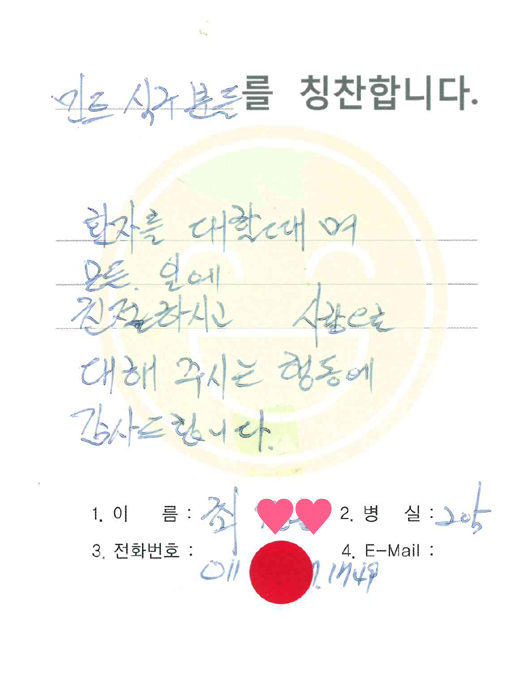 민트 식구분들를 칭찬합니다.
환자를 대할때 며
모든 일에
친절하시고 사랑으로
대해 주시는 행동에
감사드립니다.
1. 이 름 : 최 2. 병 실 : 205
3. 전화번호 : 4. E-Mail :
011 1749